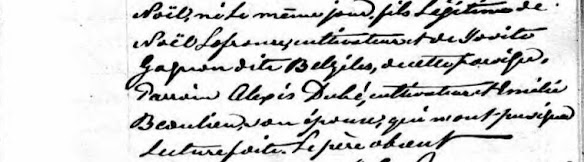 Noël, né le même jour, fils légitime de
Noël Lafrance, cultivateur et de Jovite
Gagnon dite Belzile, de cette paroisse.
Parrain Alexis Dubé, cultivateur et Emilie
Beaulieu, son épouse, qui n'ont pu signer
lecture faite. Le père absent